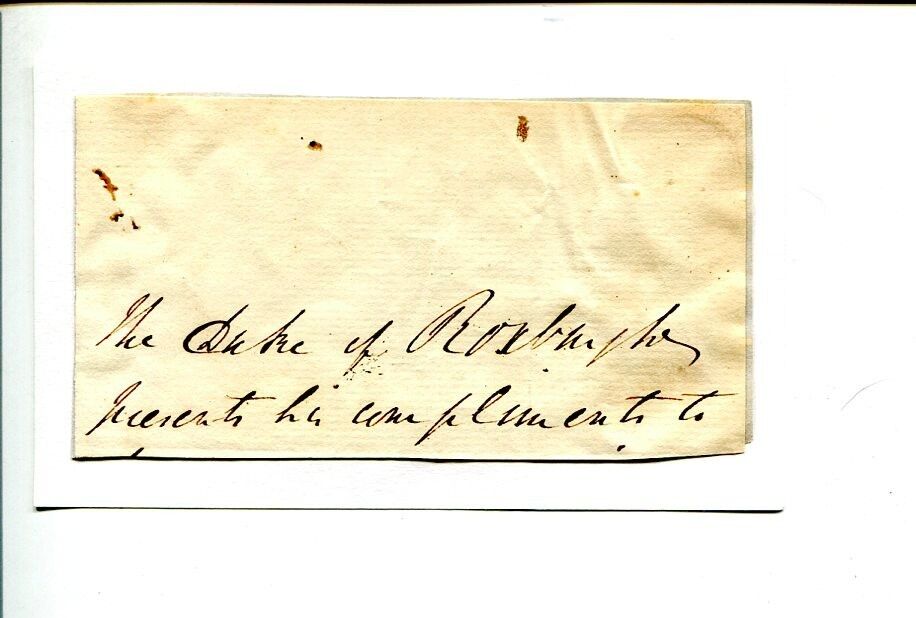 The Duke of Roxburghe
presents his compliments to